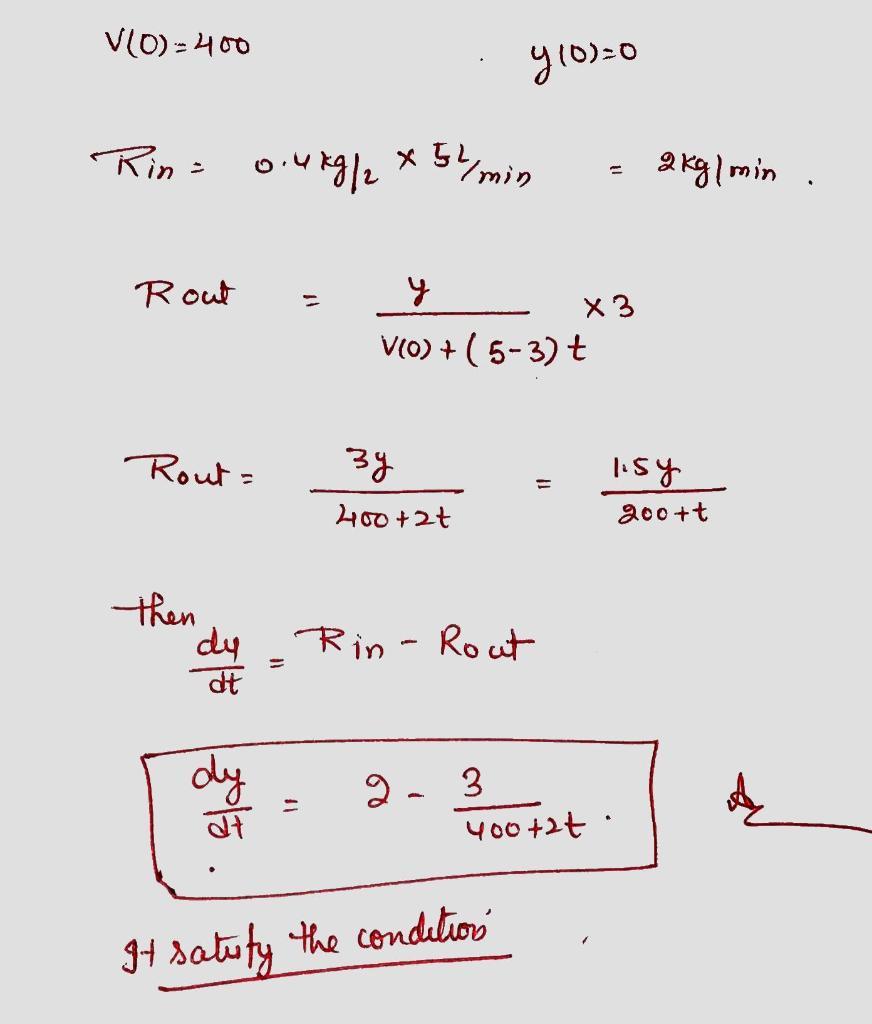 V(0) = 400 y(0)=0
Rin = 0.4 kg/L × 5L/min = 2kg/min .
Rout = y / (V(0) + (5-3) t) × 3
Rout = 3y / (400 + 2t) = 1.5y / (200 + t)
then
dy/dt = Rin - Rout
dy/dt = 2 - 3 / (400 + 2t) .
It satisfy the condition